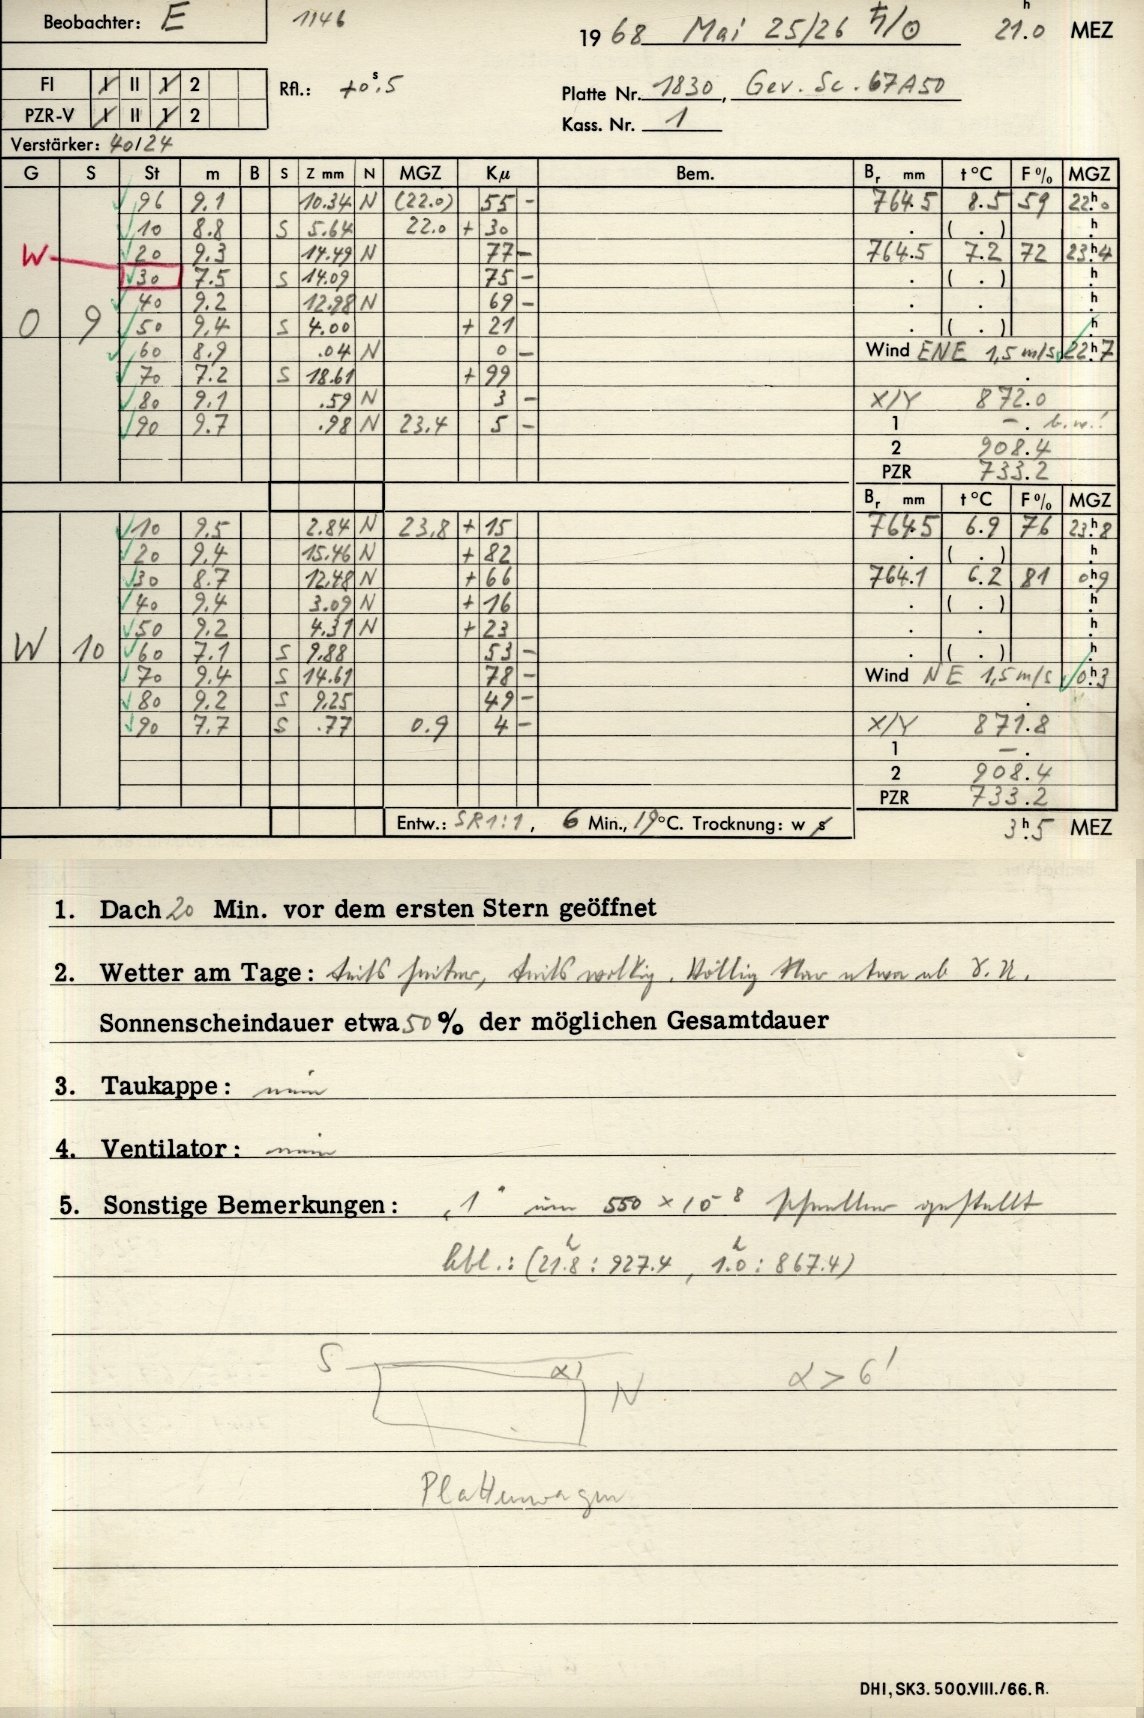 Beobachter: E 1146 1968 Mai 25/26 ♄/☉ 21.0 h MEZ
FI I II 1 2 Rfl.: +0.s5 Platte Nr. 1830, Gev. Sc. 67A50
PZR-V I II 1 2 Kass. Nr. 1
Verstärker: 40/24
G S St m B S Z mm N MGZ Kμ Bem. Br mm t °C F % MGZ
96 9.1 10.34 N (22.0) 55 - 764.5 8.5 59 22.h0
10 8.8 S 5.64 22.0 + 30 . ( . ) .h
W 20 9.3 14.49 N 77 - 764.5 7.2 72 23.h4
30 7.5 S 14.09 75 - . ( . ) .h
40 9.2 12.98 N 69 - . . .h
O 9 50 9.4 S 4.00 + 21 . ( . ) .h
60 8.9 .04 N 0 - Wind ENE 1,5 m/s 22.h7
70 7.2 S 18.61 + 99 .
80 9.1 .59 N 3 - X/Y 872.0
90 9.7 .98 N 23.4 5 - 1 -. b.w.!
2 908.4
PZR 733.2
Br mm t °C F % MGZ
10 9.5 2.84 N 23.8 + 15 764.5 6.9 76 23.h8
20 9.4 15.46 N + 82 . ( . ) .h
30 8.7 12.48 N + 66 764.1 6.2 81 0.h9
40 9.4 3.09 N + 16 . ( . ) .h
50 9.2 4.31 N + 23 . . .h
W 10 60 7.1 S 9.88 53 - . ( . ) .h
70 9.4 S 14.61 78 - Wind NE 1,5 m/s 0.h3
80 9.2 S 9.25 49 - .
90 7.7 S .77 0.9 4 - X/Y 871.8
1 -.
2 908.4
PZR 733.2
Entw.: SR1:1, 6 Min., 19°C. Trocknung: w s 3.h5 MEZ
1. Dach 20 Min. vor dem ersten Stern geöffnet
2. Wetter am Tage: teils heiter, teils wolkig. Völlig klar etwa ab S. U.
Sonnenscheindauer etwa 50 % der möglichen Gesamtdauer
3. Taukappe: nein
4. Ventilator: nein
5. Sonstige Bemerkungen: „1" um 550 × 10-8 schneller gestellt
hbl.: (21.h8 : 927.4, 1.h0 : 867.4)
S α N α > 6'
Plattenwagen
DHI, SK3. 500.VIII./66. R.